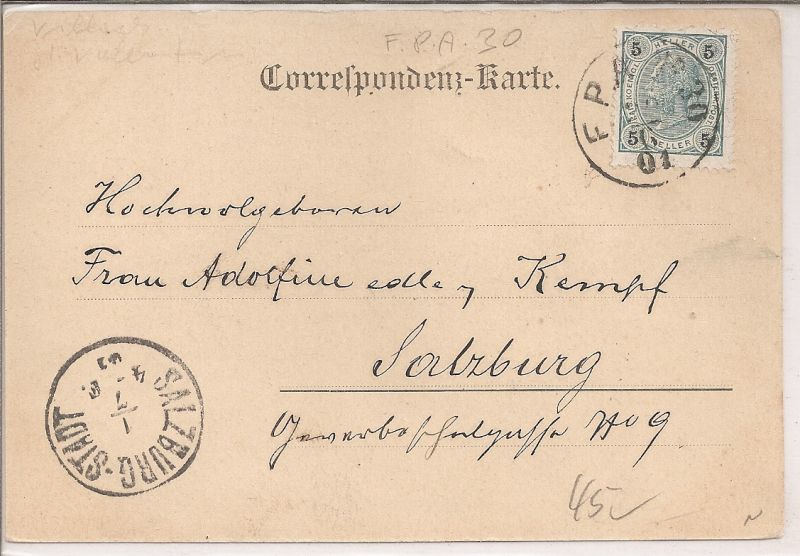 F.P.A. 30
Correspondenz-Karte.
5 HELLER 5
5 HELLER 5
F.P.A. 30
01
Hochwolgeboren
Frau Adolfine edle v Kempf
Salzburg
Gewerbeschulgasse No 9
SALZBURG-STADT
45